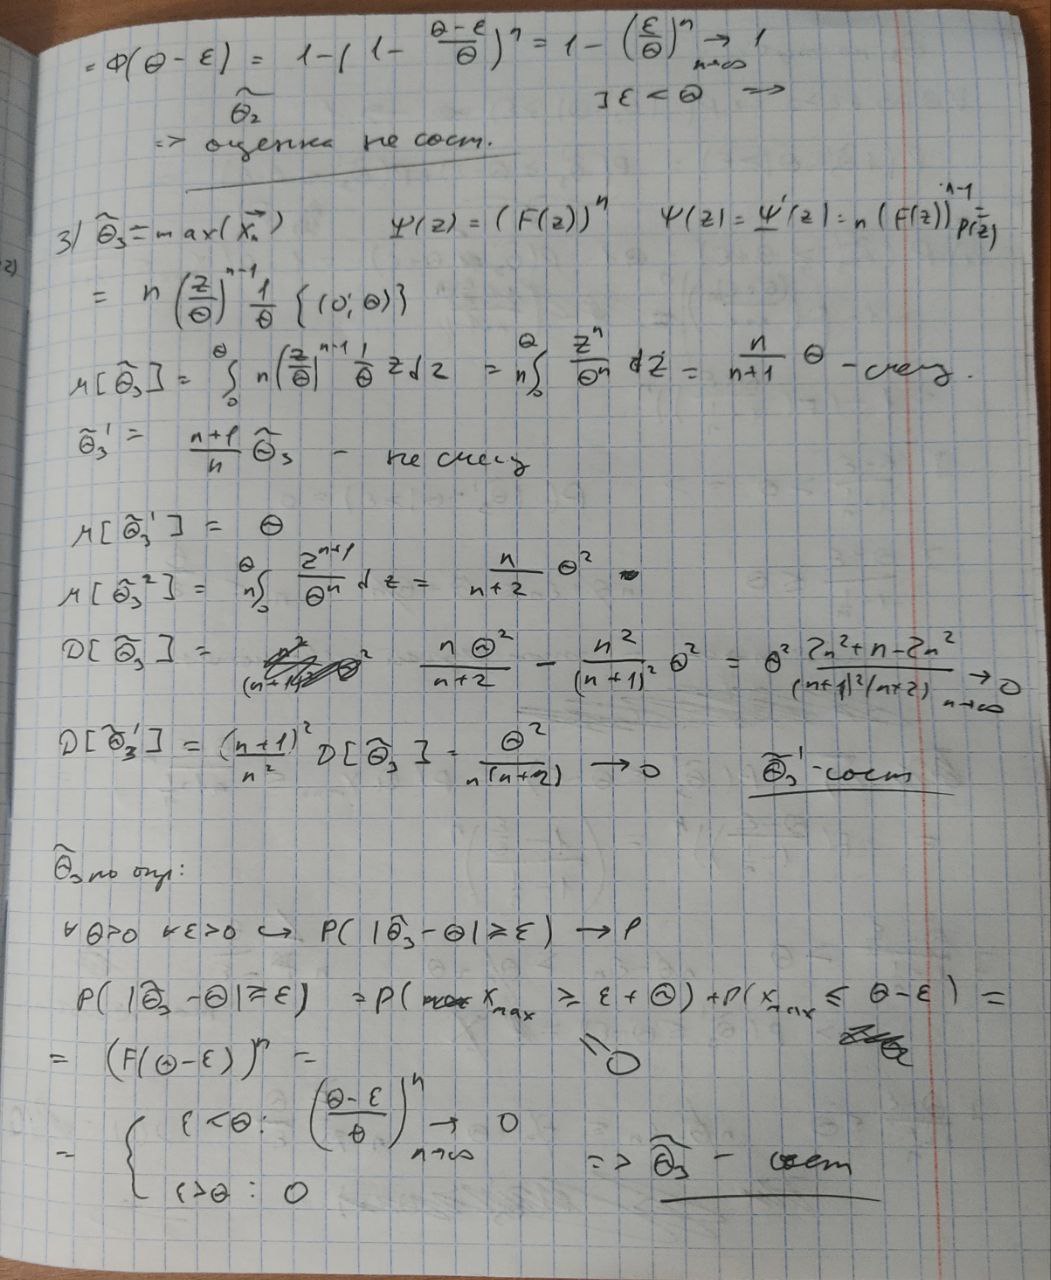 = Φ(Θ - ε) = 1 - (1 - (Θ-ε)/Θ)ⁿ = 1 - (ε/Θ)ⁿ → 1 n→∞
Θ̃₂ ∃ ε < Θ ⇒
=> оценка не сост.
3) Θ̃₃ = max(x⃗ₙ) Ψ(z) = (F(z))ⁿ ψ(z) = Ψ'(z) = n (F(z))ⁿ⁻¹ p(z) =
= n (z/Θ)ⁿ⁻¹ 1/Θ {(0; Θ)}
M[Θ̃₃] = ∫₀^Θ n (z/Θ)ⁿ⁻¹ 1/Θ z dz = n ∫₀^Θ zⁿ/Θⁿ dz = n/(n+1) Θ - смещ.
Θ̃₃' = (n+1)/n Θ̃₃ - не смещ
M[Θ̃₃'] = Θ
M[Θ̃₃²] = n ∫₀^Θ zⁿ⁺¹/Θⁿ dz = n/(n+2) Θ²
D[Θ̃₃] = nΘ²/(n+2) - n²/(n+1)² Θ² = Θ² (2n²+n-2n²)/((n+1)²(n+2)) → 0 n→∞
D[Θ̃₃'] = (n+1)²/n² D[Θ̃₃] = Θ²/(n(n+2)) → 0 Θ̃₃' - сост
Θ̃₃ по опр:
∀Θ>0 ∀ε>0 ↪ P(|Θ̃₃ - Θ| ≥ ε) → P
P(|Θ̃₃ - Θ| ≥ ε) = P(x_max ≥ ε + Θ) + P(x_max ≤ Θ - ε) =
= (F(Θ-ε))ⁿ = " 0
= { ε < Θ : ((Θ-ε)/Θ)ⁿ → 0 n→∞
ε > Θ : 0 => Θ̃₃ - сост